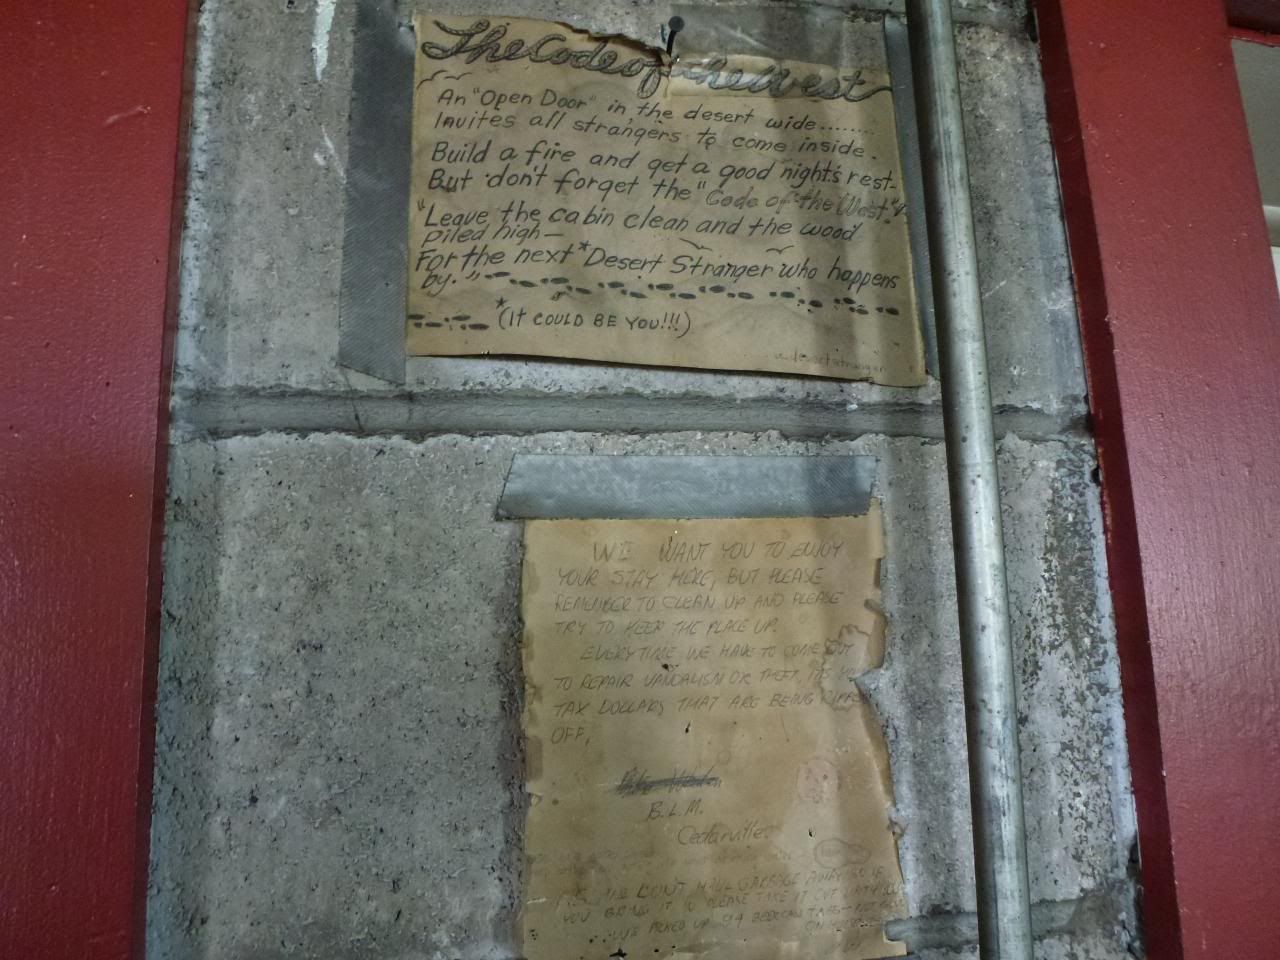 The Code of the West
An "Open Door" in the desert wide........
Invites all strangers to come inside.
Build a fire and get a good night's rest-
But don't forget the "Code of the West"
"Leave the cabin clean and the wood
piled high—
For the next *Desert Stranger who happens
by."
*(IT COULD BE YOU!!!)
a desert stranger
WE WANT YOU TO ENJOY
YOUR STAY HERE, BUT PLEASE
REMEMBER TO CLEAN UP AND PLEASE
TRY TO KEEP THE PLACE UP.
EVERYTIME WE HAVE TO COME OUT
TO REPAIR VANDALISM OR THEFT, ITS
TAX DOLLARS THAT ARE BEING RIPPED
OFF.
B.L.M.
Cedarville
P.S. WE DON'T HAUL GARBAGE AWAY SO IF
YOU BRING IT IN PLEASE TAKE IT OUT WITH
WE PICKED UP